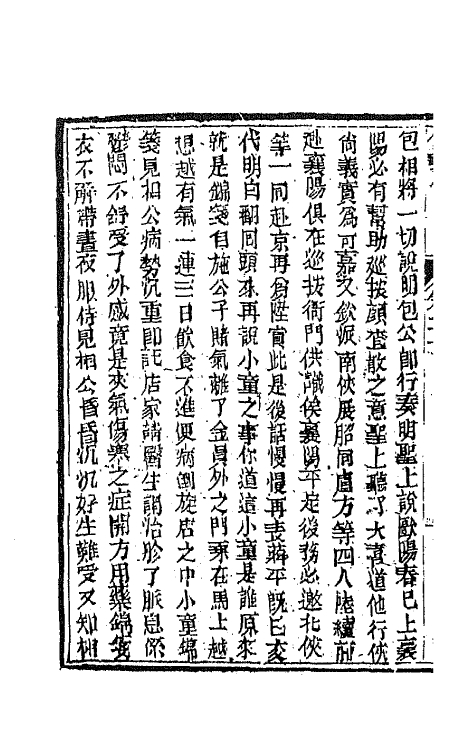 包相將一切說明包公卽行奏明聖上說歐陽春已上襄
陽必有幫助巡按顏查散之意聖上聽了大喜道他行俠
尙義實爲可嘉又欽派南俠展昭同盧方等四人陸續前
赴襄陽俱在巡按衙門供職俟襄陽平定後務必邀北俠
等一同赴京再爲陞賞此是後話慢慢再表蔣平旣已交
代明白翻囘頭來再說小童之事你道這小童是誰原來
就是錦箋自施公子賭氣離了金員外之門乘在馬上越
想越有氣一連三日飮食不進便病倒旅店之中小童錦
箋見相公病勢沉重卽託店家請醫生調治胗了脈息係
鬱悶不舒受了外感竟是夾氣傷寒之症開方用藥錦箋
衣不解帶晝夜服侍見相公昏昏沉沉好生難受又知相